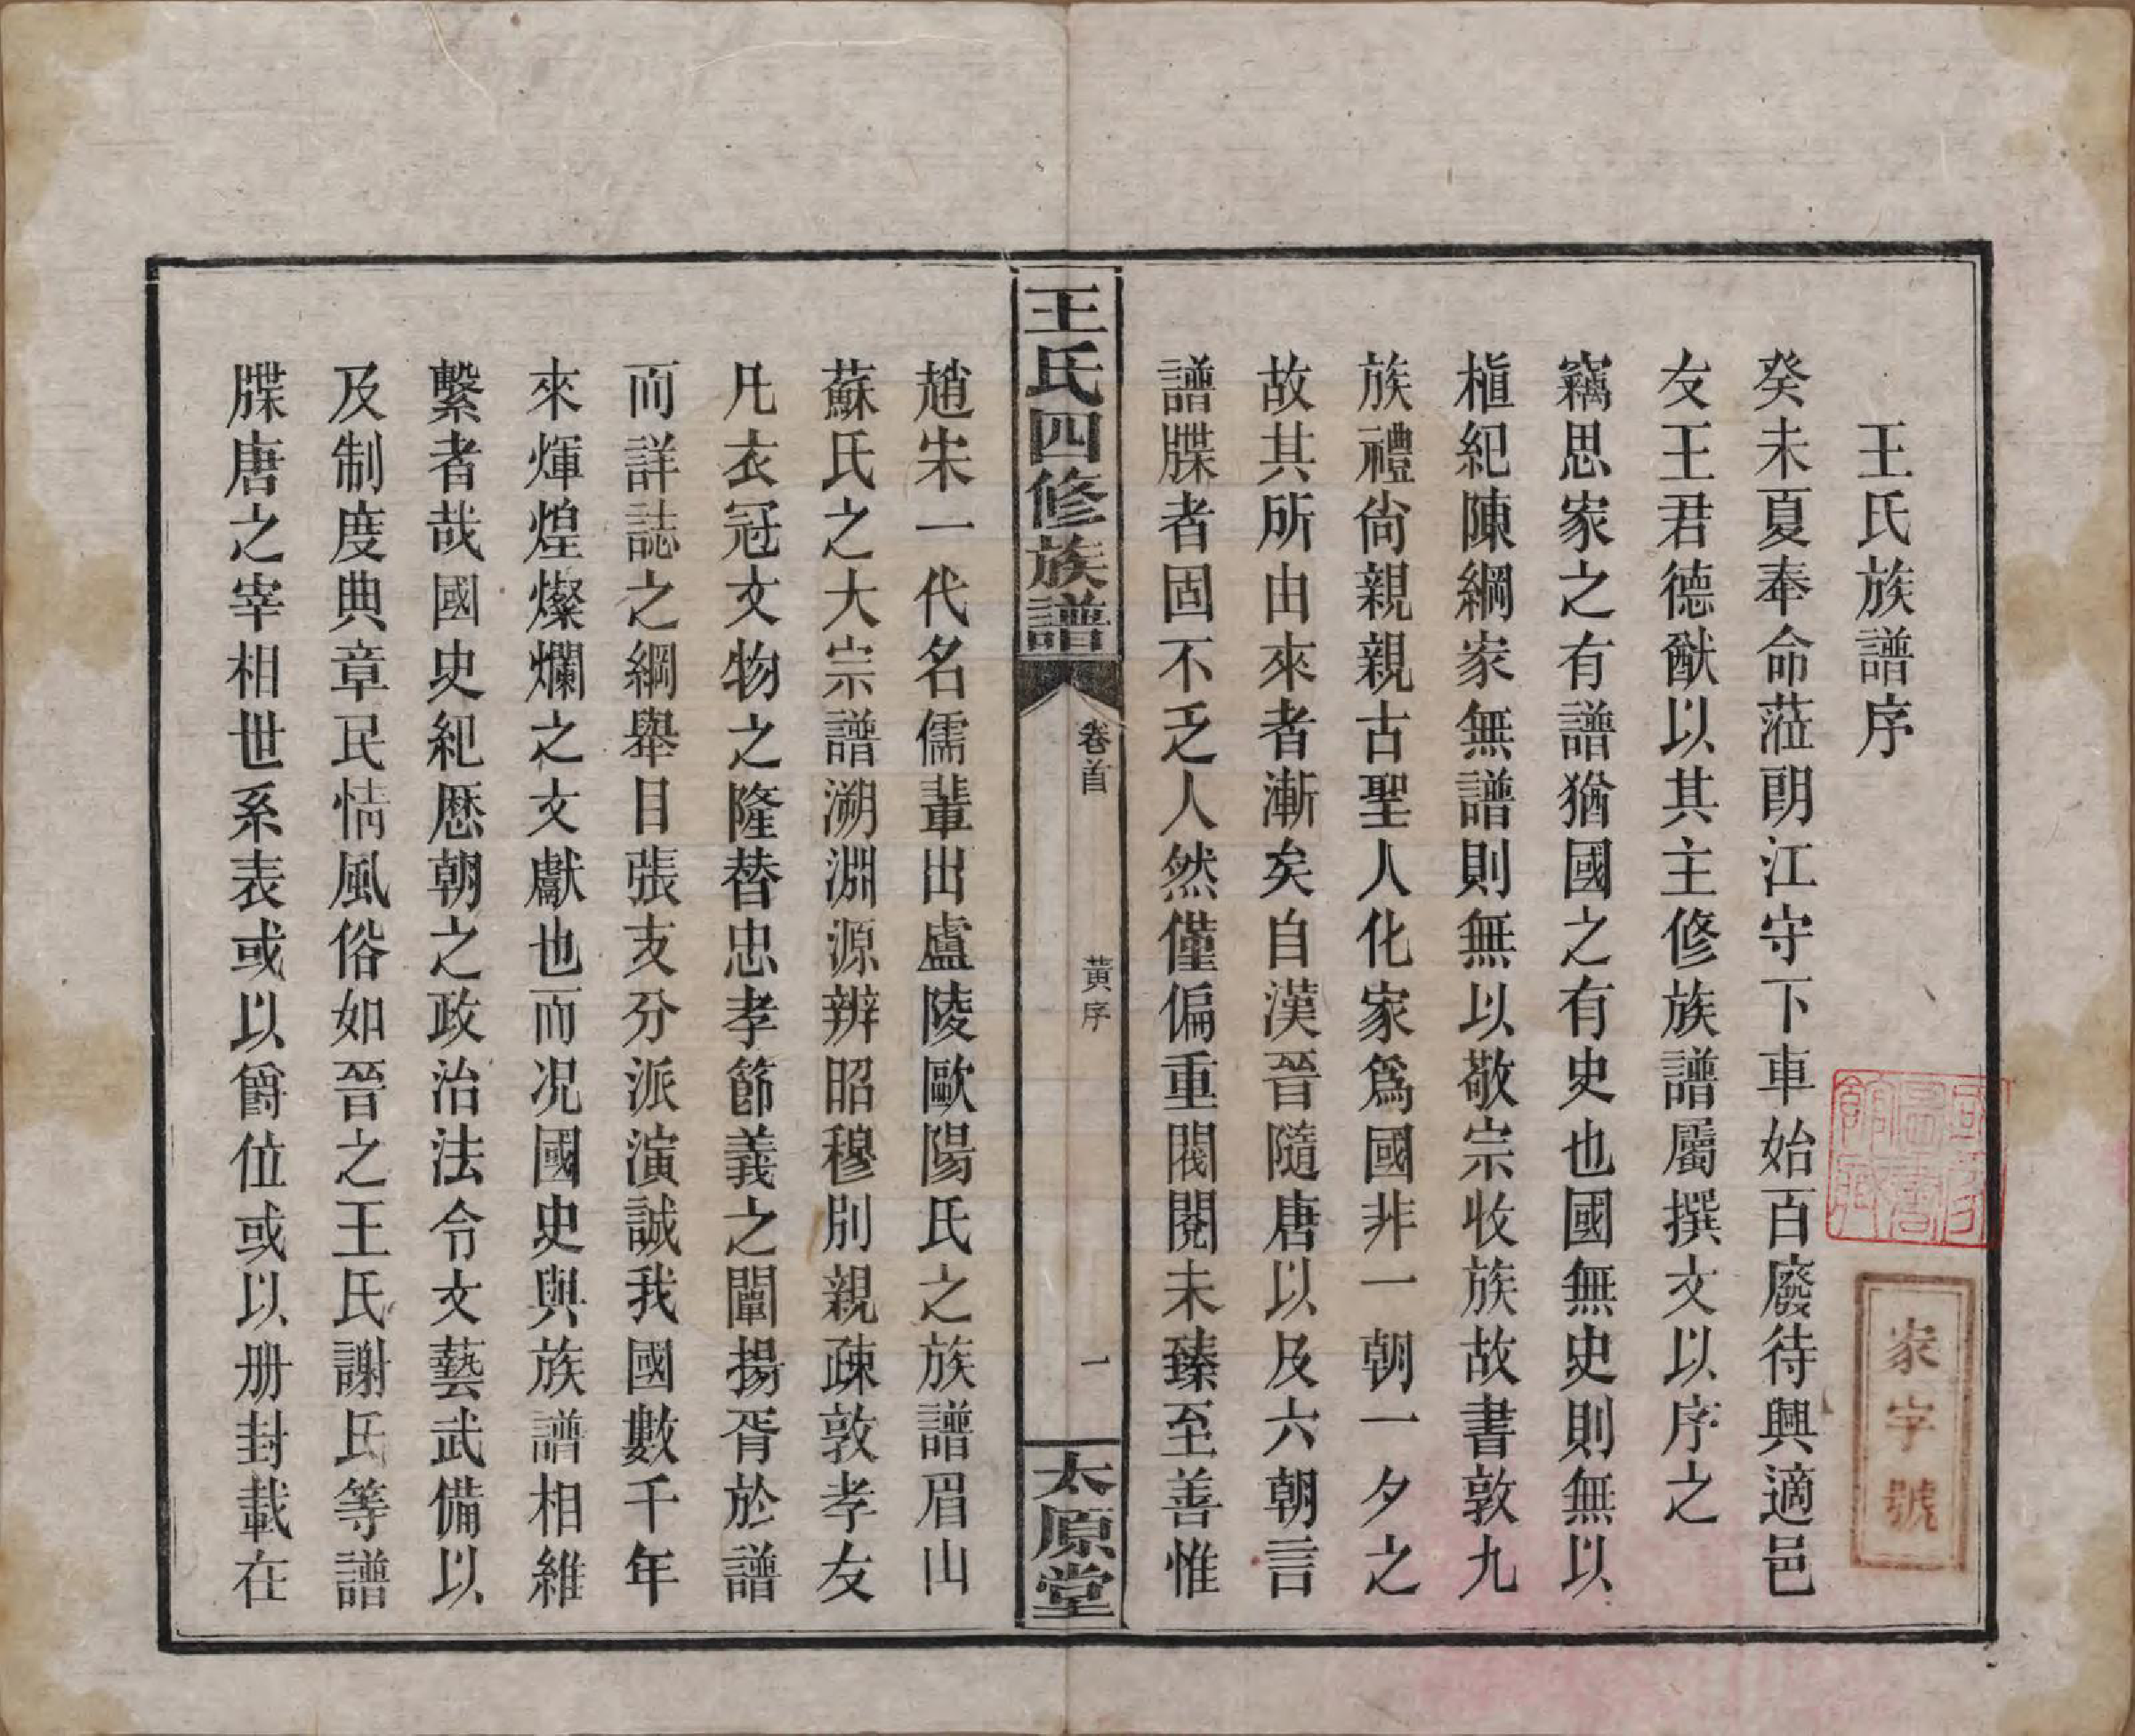 王氏族譜序
癸未夏奉命蒞朗江守下車始百廢待興適邑
友王君德猷以其主修族譜屬撰文以序之
竊思家之有譜猶國之有史也國無史則無以
植紀陳綱家無譜則無以敬宗收族故書敦九
族禮尙親親古聖人化家爲國非一朝一夕之
故其所由來者漸矣自漢晉隨唐以及六朝言
譜牒者固不乏人然僅偏重閥閱未臻至善惟
王氏四修族譜
卷首
黃序
一
太原堂
趙宋一代名儒輩出盧陵歐陽氏之族譜眉山
蘇氏之大宗譜溯淵源辨昭穆別親疎敦孝友
凡衣冠文物之隆替忠孝節義之闡揚胥於譜
而詳誌之綱舉目張支分派演誠我國數千年
來煇煌燦爛之文獻也而况國史與族譜相維
繫者哉國史紀歷朝之政治法令文藝武備以
及制度典章民情風俗如晉之王氏謝氏等譜
牒唐之宰相世系表或以爵位或以册封載在
國家圖書館藏
家字號